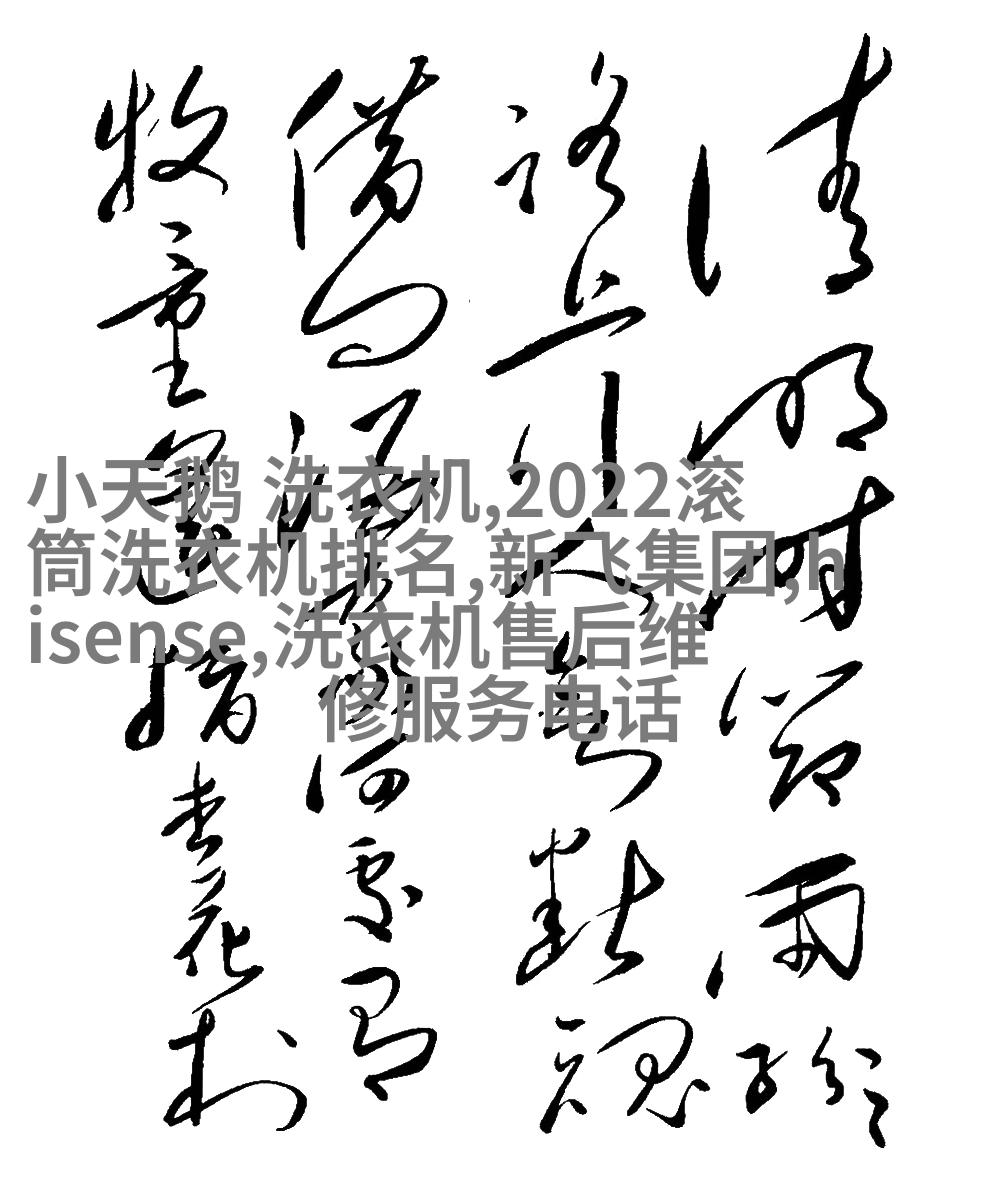 清明时節雨紛紛
路上行人欲斷魂
借問酒家何處有
牧童遙指杏花村
小天鹅 洗衣机,2022滚
筒洗衣机排名,新飞集团,h
isense,洗衣机售后维
修服务电话